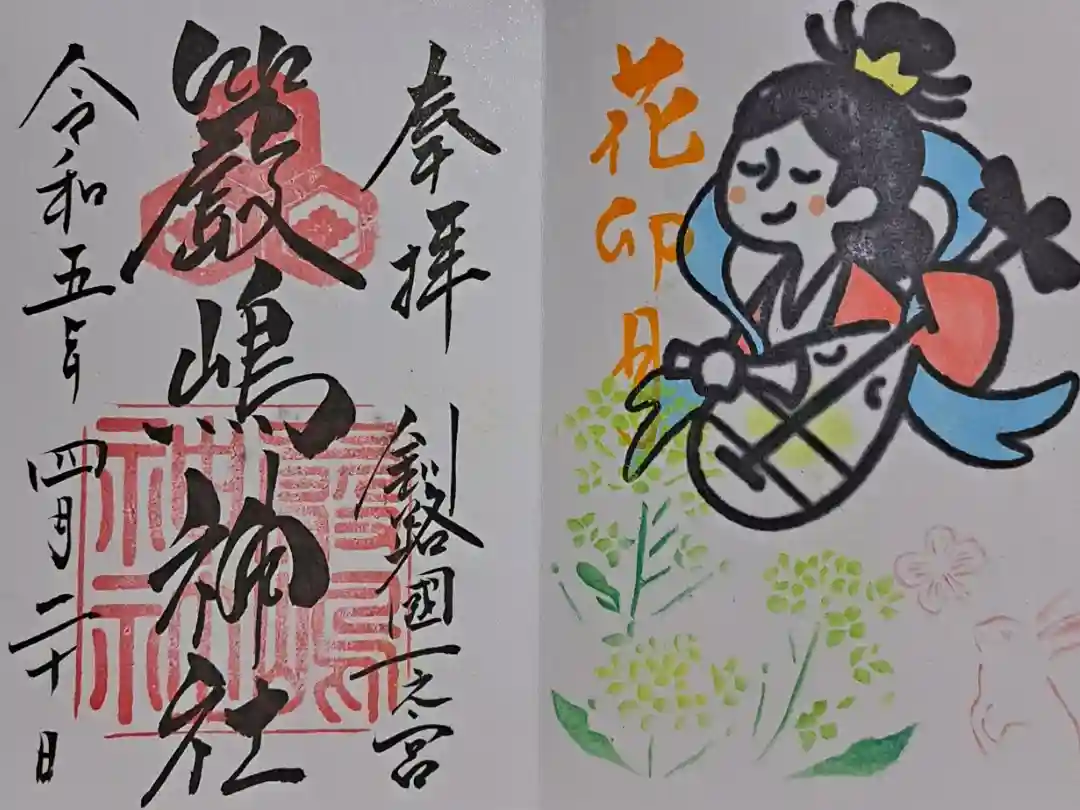 花卯月
奉拝
釧路國一之宮
嚴嶋神社
令和五年
四月二十日